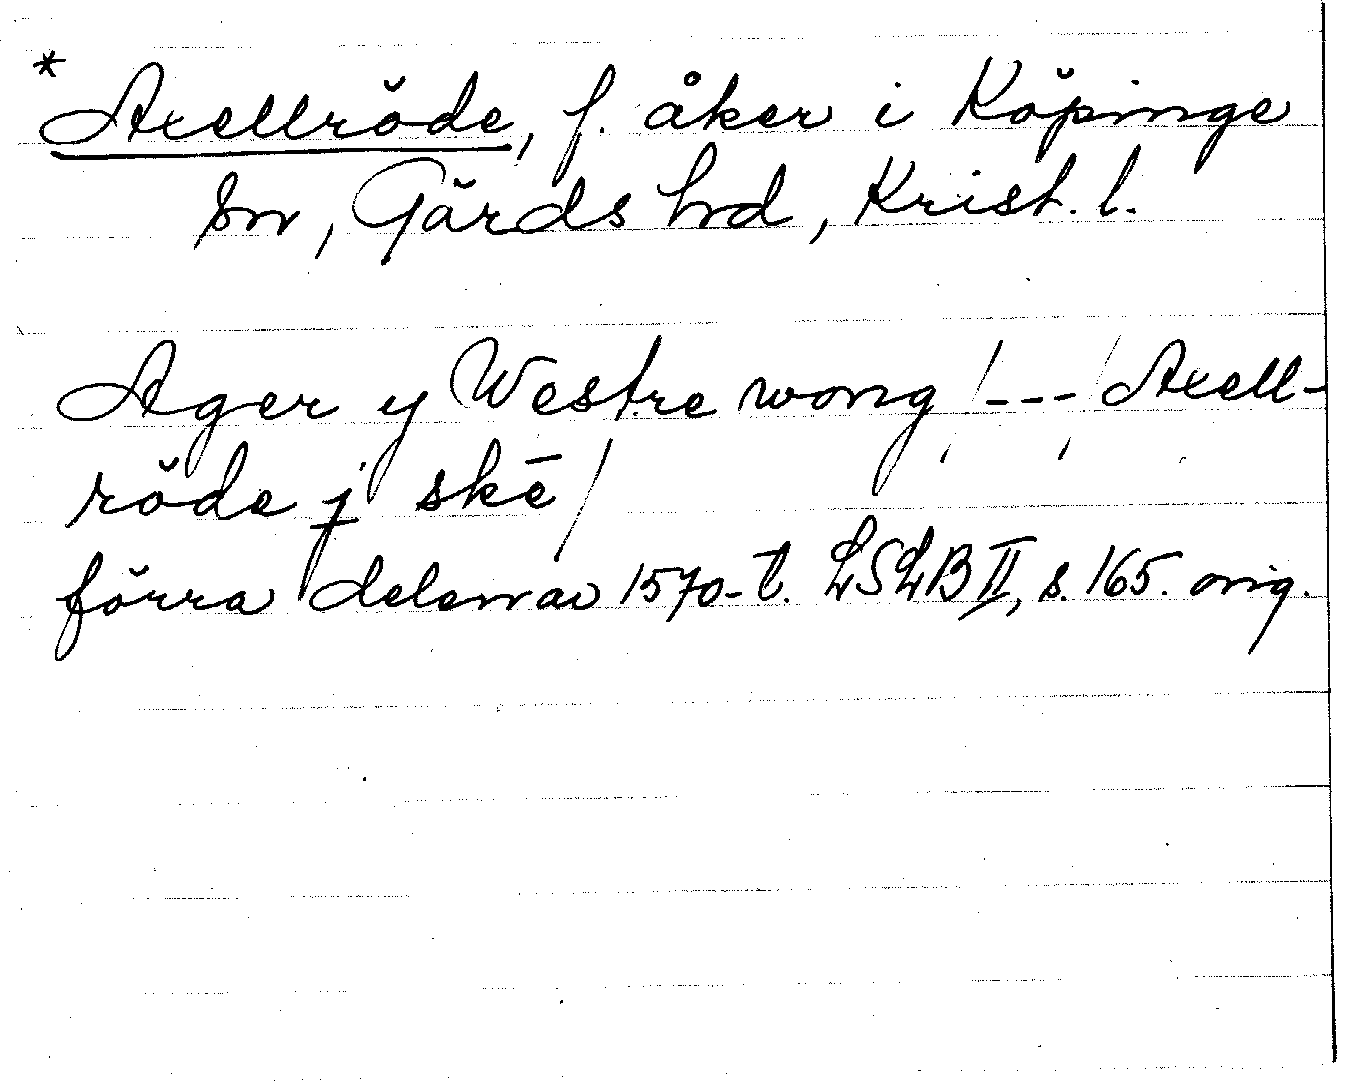 * Axellröde, f. åker i Köpinge
sn, Gärds hd, Krist. l.
Ager y Westre wong /---/ Axell-
röde j skē/
förra delen av 1570-t. LSLB II, s. 165. orig.